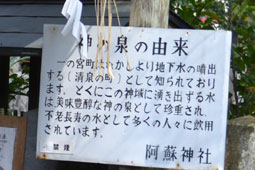 神の泉の由来
一の宮町はむかしより地下水の噴出
する「清泉の町」として知られており
ます。とくにこの神域に湧き出ずる水
は美味豊醇な神の泉として珍重され、
不老長寿の水として多くの人々に飲用
されています。
禁煙
阿蘇神社